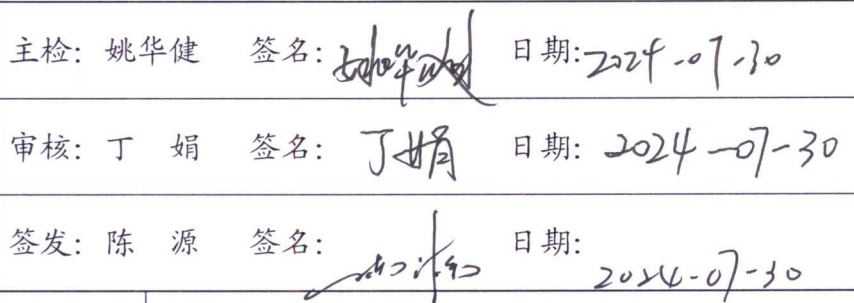 主检: 姚华健 签名: 姚华健 日期: 2024-07-30
审核: 丁 娟 签名: 丁娟 日期: 2024-07-30
签发: 陈 源 签名: 日期: 2024-07-30